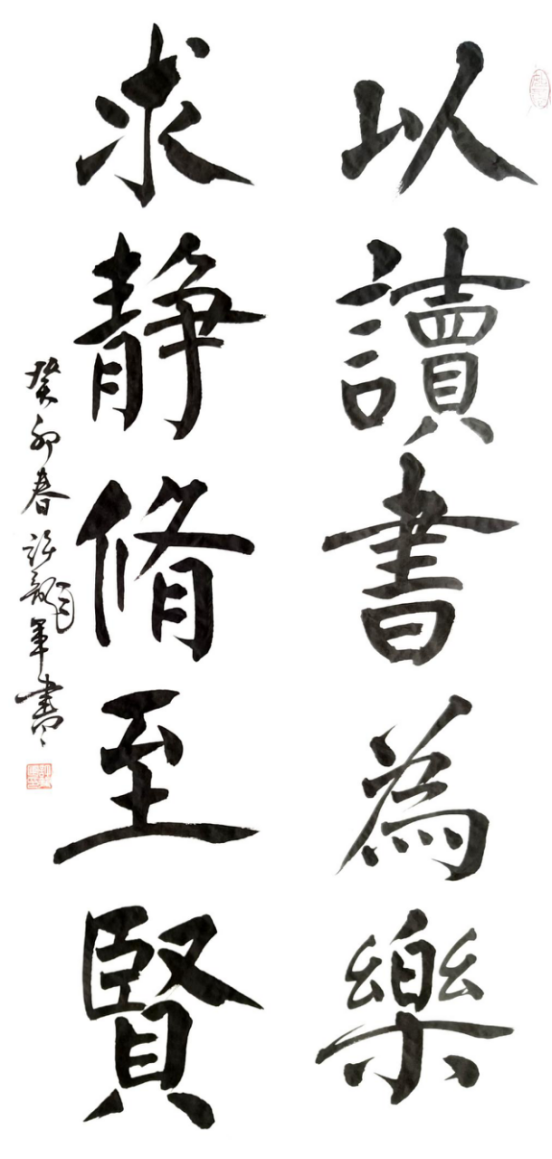 以讀書為樂
求靜脩至賢
癸卯春許年書